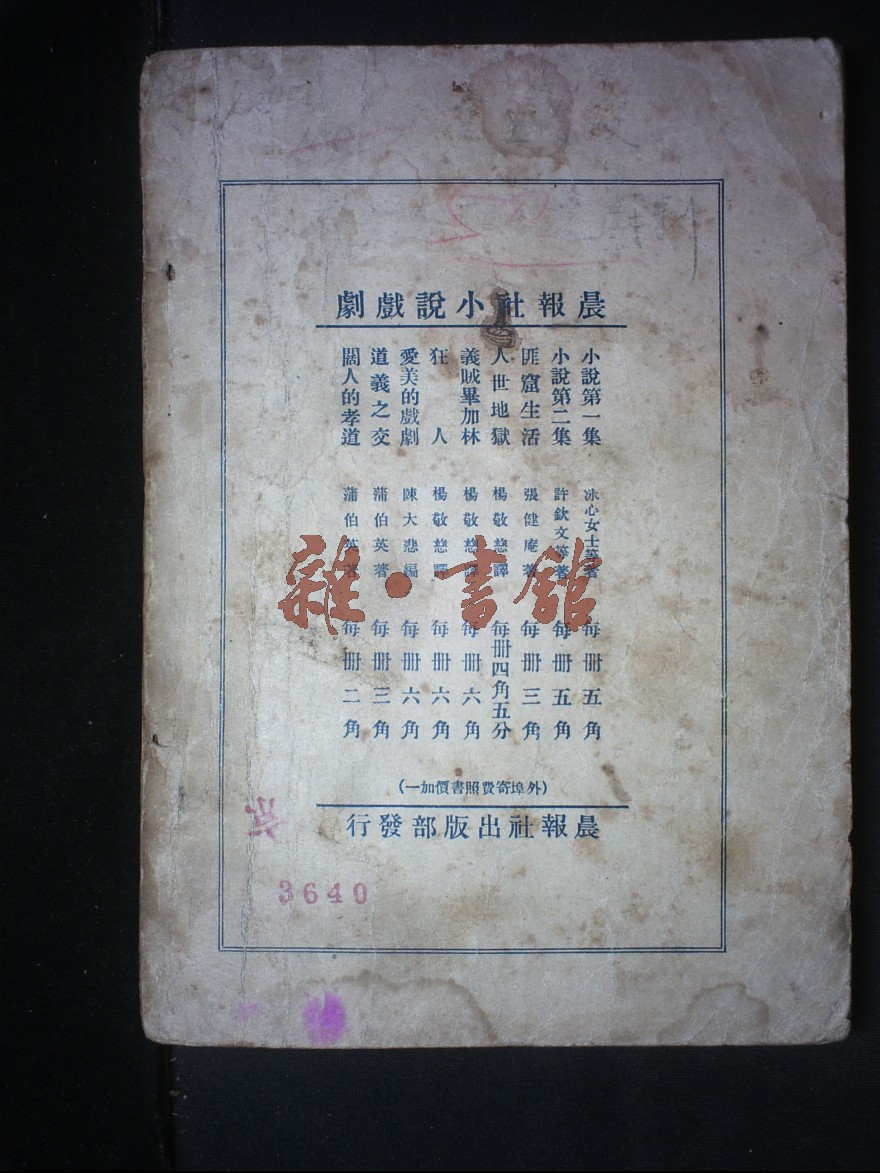 晨報社小說戲劇
小說第一集 冰心女士等著 每冊五角
小說第二集 許欽文等著 每冊五角
匪窟生活 張健庵著 每冊三角
人世地獄 楊敬慈譯 每冊四角五分
義賊畢加林 楊敬慈譯 每冊六角
狂人 楊敬慈譯 每冊六角
愛美的戲劇 陳大悲編 每冊六角
道義之交 蒲伯英著 每冊三角
闊人的孝道 蒲伯英著 每冊二角
(外埠寄費照書價加一)
晨報社出版部發行
3640
雜·書館